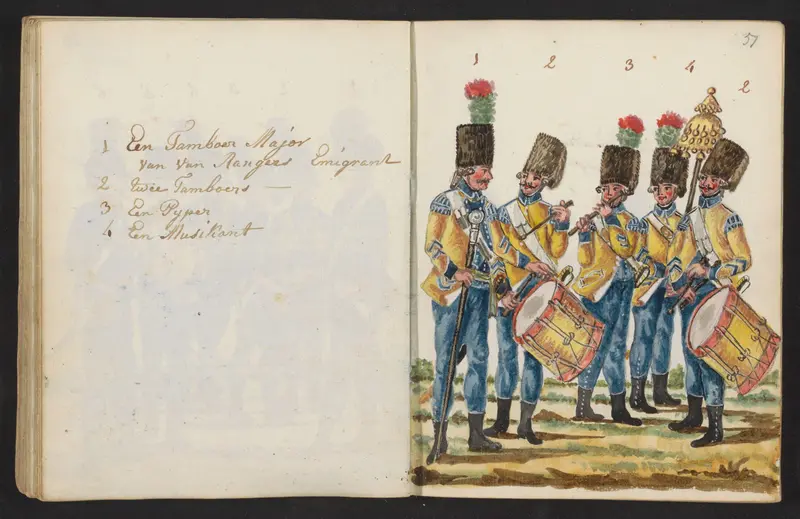 1 Een Tamboer Major
van van Rangers Emigrant
2 twee Tamboers —
3 Een Pyper
4 Een Musikant
37
1 2 3 4 2